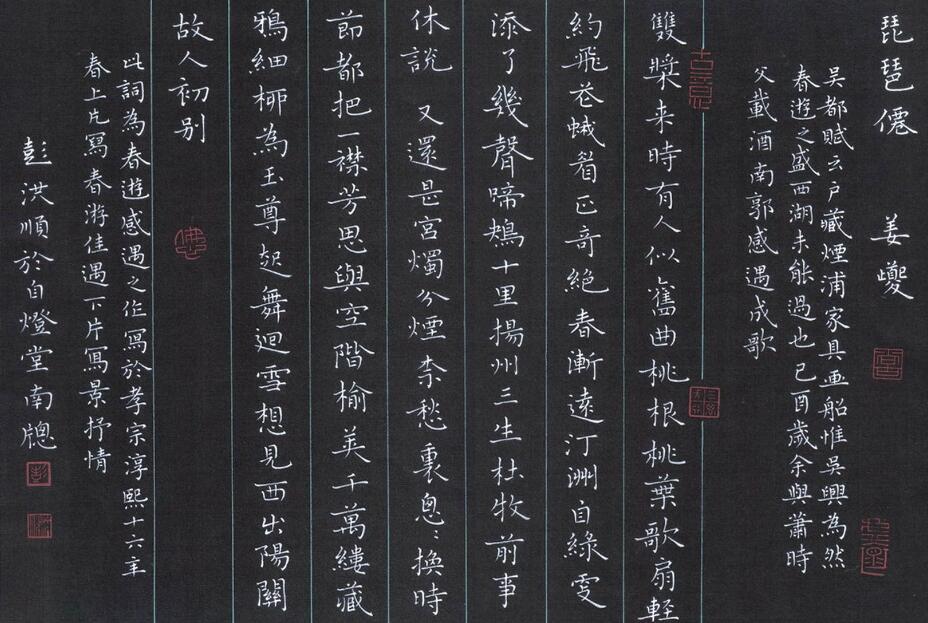 琵琶僊 姜夔
吳都賦云戶藏煙浦家具画船惟吳興為然
春遊之盛西湖未能過也己酉歲余與蕭時
父載酒南郭感遇成歌
雙槳来時有人似舊曲桃根桃葉歌扇輕
約飛花蛾眉正奇絕春漸遠汀洲自綠更
添了幾聲啼鴂十里揚州三生杜牧前事
休說 又還是宮燭分煙柰愁裏怱〻換時
節都把一襟芳思與空階榆莢千萬縷藏
鴉細柳為玉尊起舞迴雪想見西出陽關
故人初别
此詞為春遊感遇之作寫於孝宗淳熙十六年
春上片寫春游佳遇下片寫景抒情
彭洪順於自燈堂南牕
彭